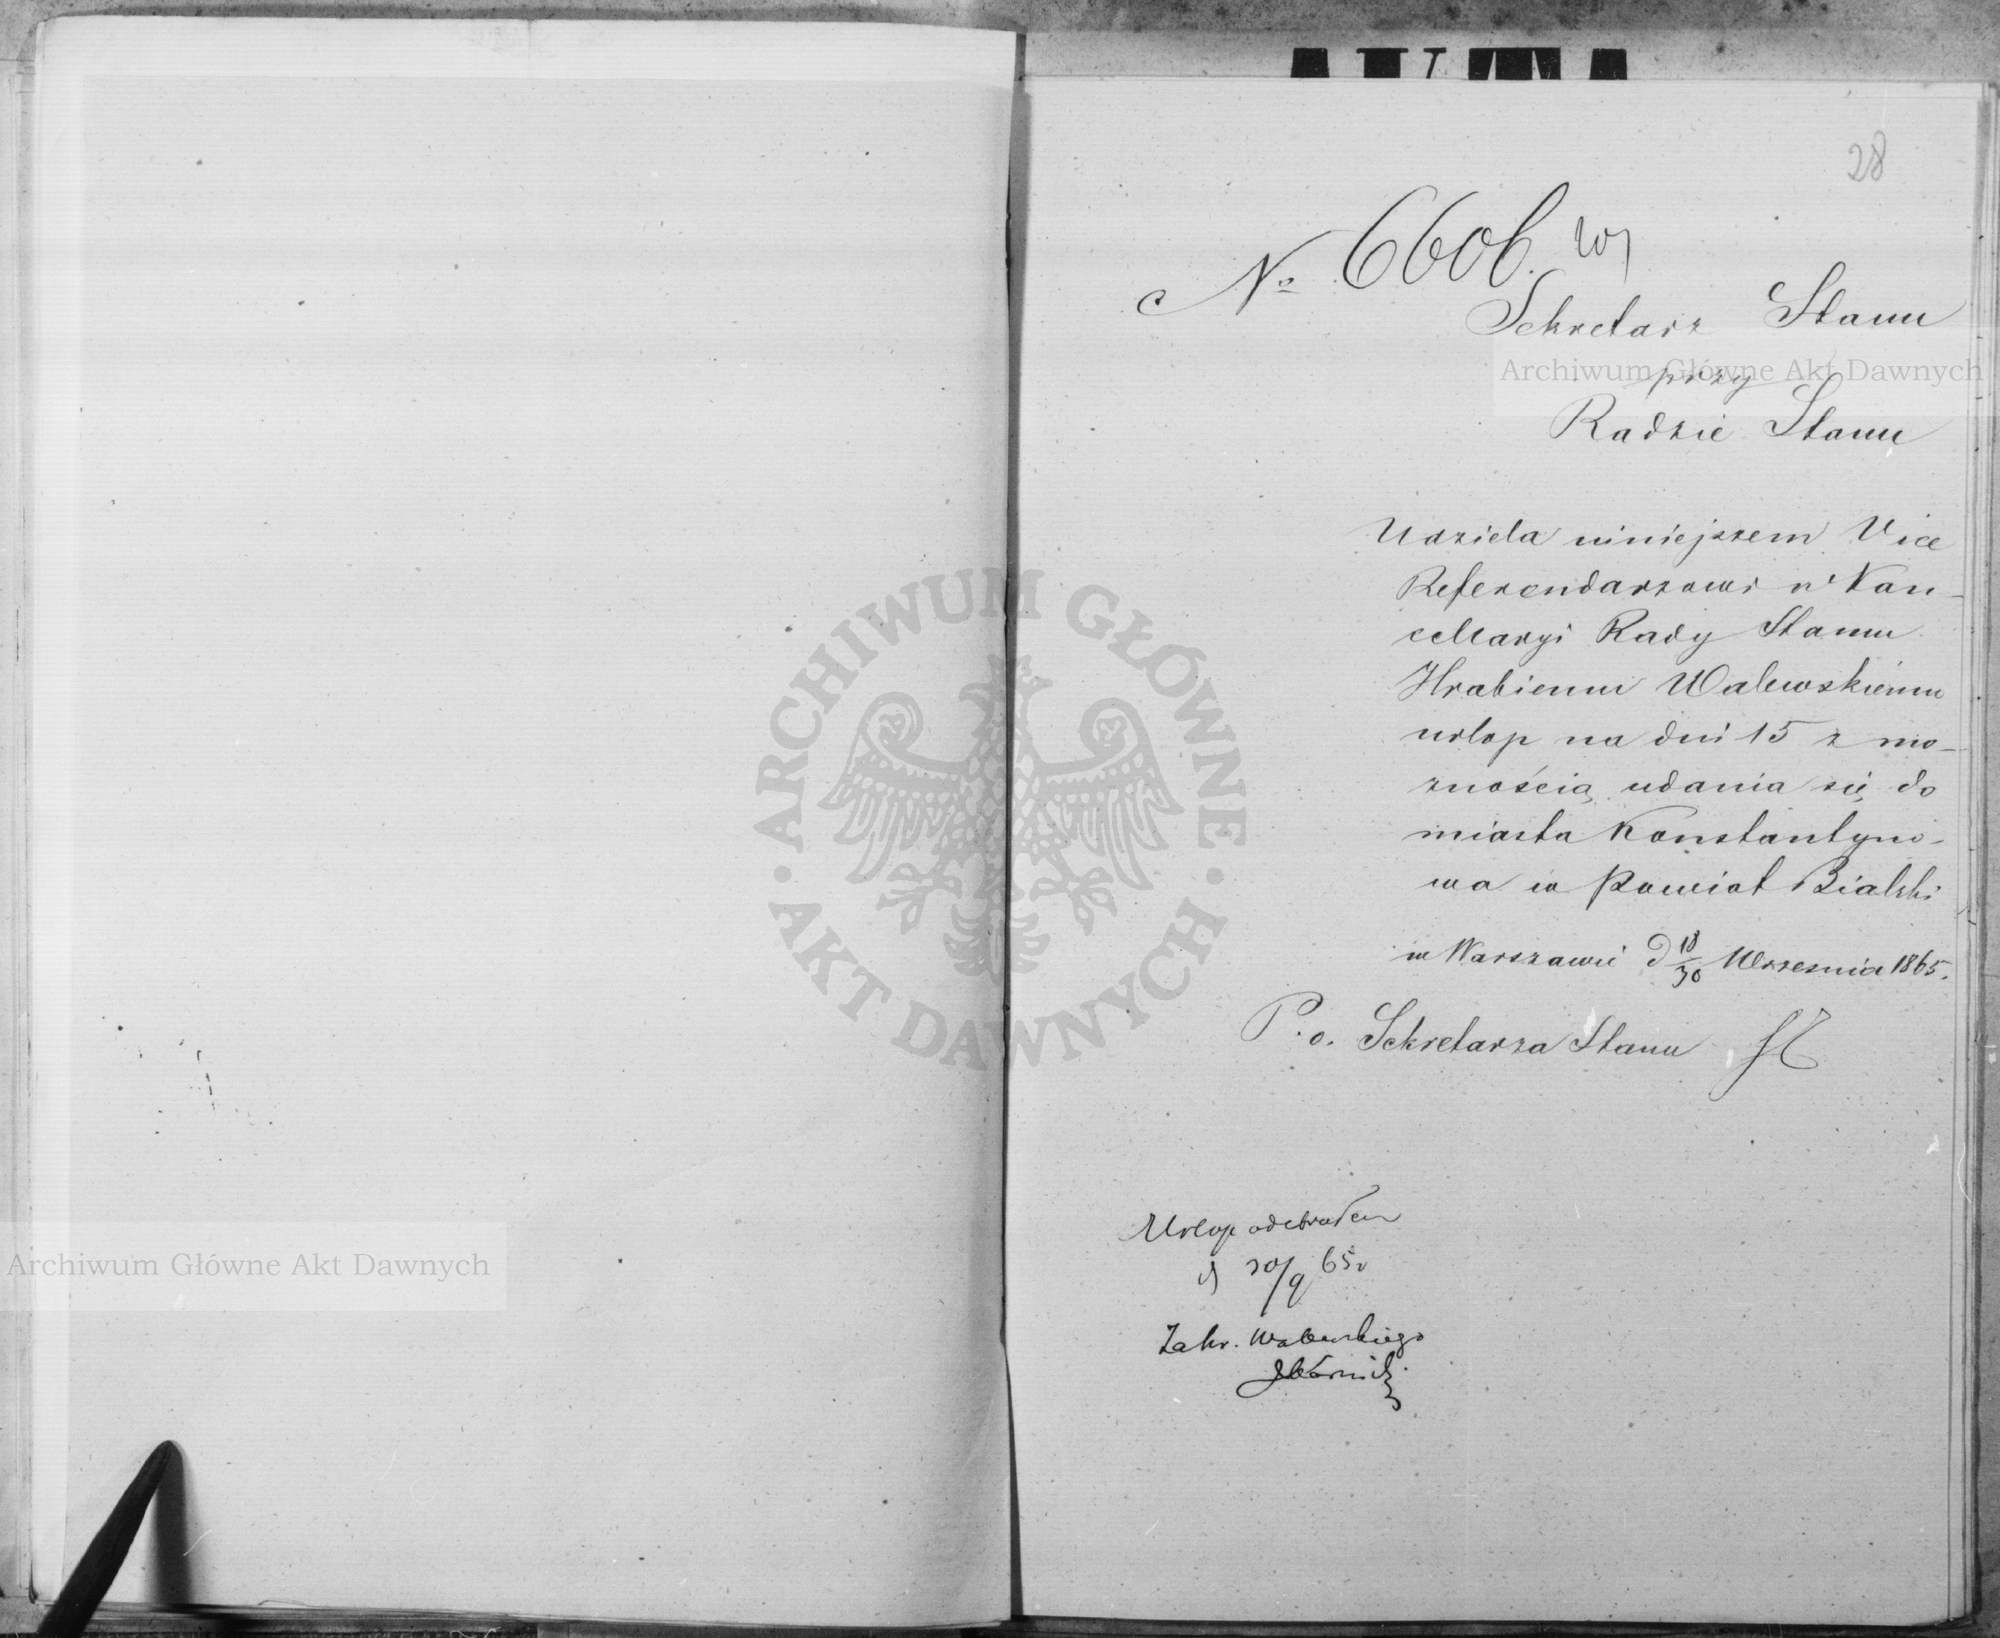 28
No 6606. W
Sekretarz Stanu
przy
Radzie Stanu
Udziela niniejszem Vice
Referendarzowi w Kan-
cellaryi Rady Stanu
Hrabiemu Walewskiemu
urlop na dni 15 z mo-
żnością udania się do
miasta Konstantyno-
wa w Powiat Bialski
w Warszawie d 18/30 Wrzesnia 1865.
P. o. Sekretarza Stanu
Urlop odebrałem
d 30/9 65 r
Za hr. Walewskiego
Archiwum Główne Akt Dawnych
Archiwum Główne Akt Dawnych
ARCHIWUM GŁÓWNE · AKT DAWNYCH ·